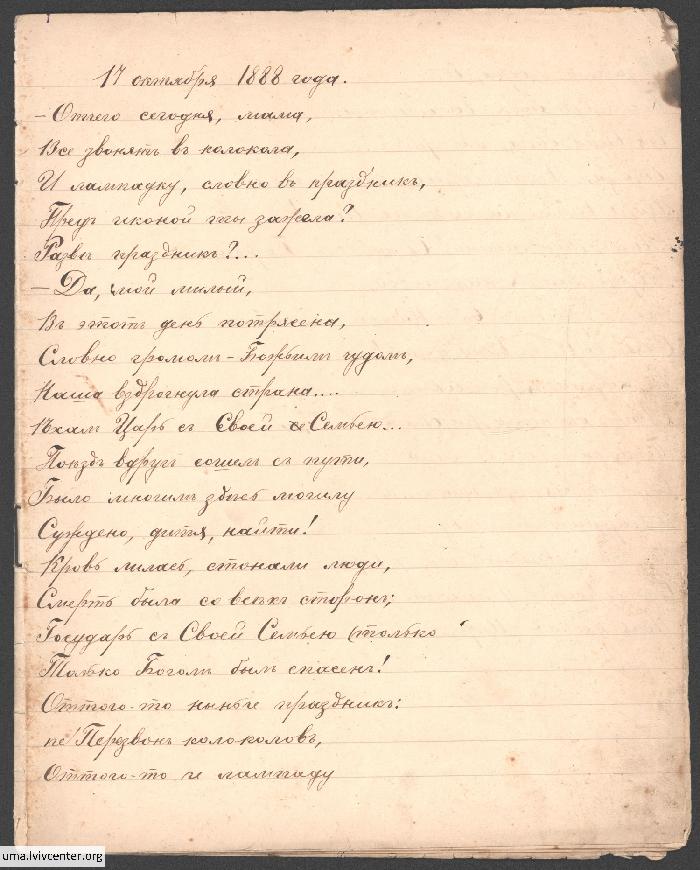 17 октября 1888 года.
– Отчего сегодня, мама,
Все звонятъ въ колокола,
И лампадку, словно въ праздникъ,
Предъ иконой ты зажгла?
Развѣ праздникъ?...
– Да, мой милый,
Въ этотъ день потрясена,
Словно громомъ – Божьимъ чудомъ,
Наша вздрогнула страна....
Ѣхалъ Царь съ Своей Семьею...
Поѣздъ вдругъ сошелъ съ пути,
Было многимъ здѣсь могилу
Суждено, дитя, найти!
Кровь лилась, стонали люди,
Смерть была со всѣхъ сторонъ;
Государь съ Своей Семьею (только
Только Богомъ былъ спасенъ!
Оттого-то нынче праздникъ:
Перезвонъ колоколовъ,
Оттого-то и лампаду
uma.lvivcenter.org